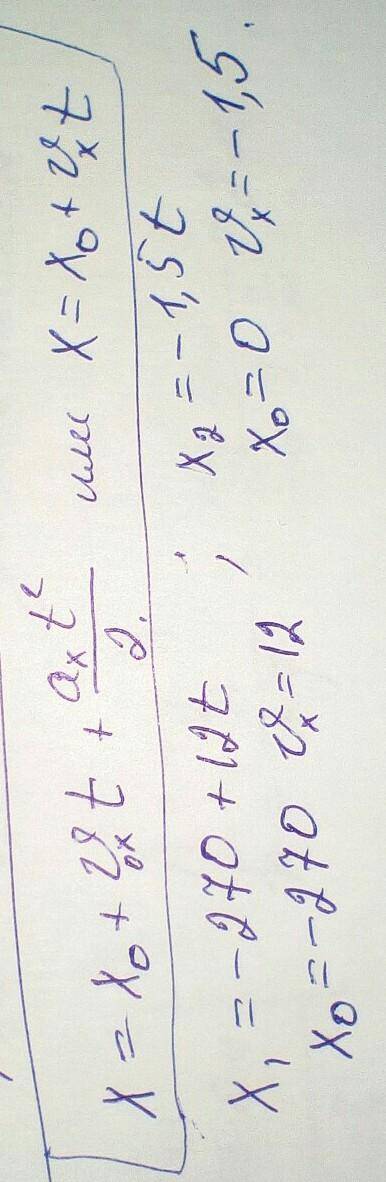 x = x₀ + v₀ₓt + aₓt²/2 или x = x₀ + vₓt
x₁ = -270 + 12t ; x₂ = -1,5t
x₀ = -270 vₓ = 12 , x₀ = 0 vₓ = -1,5.